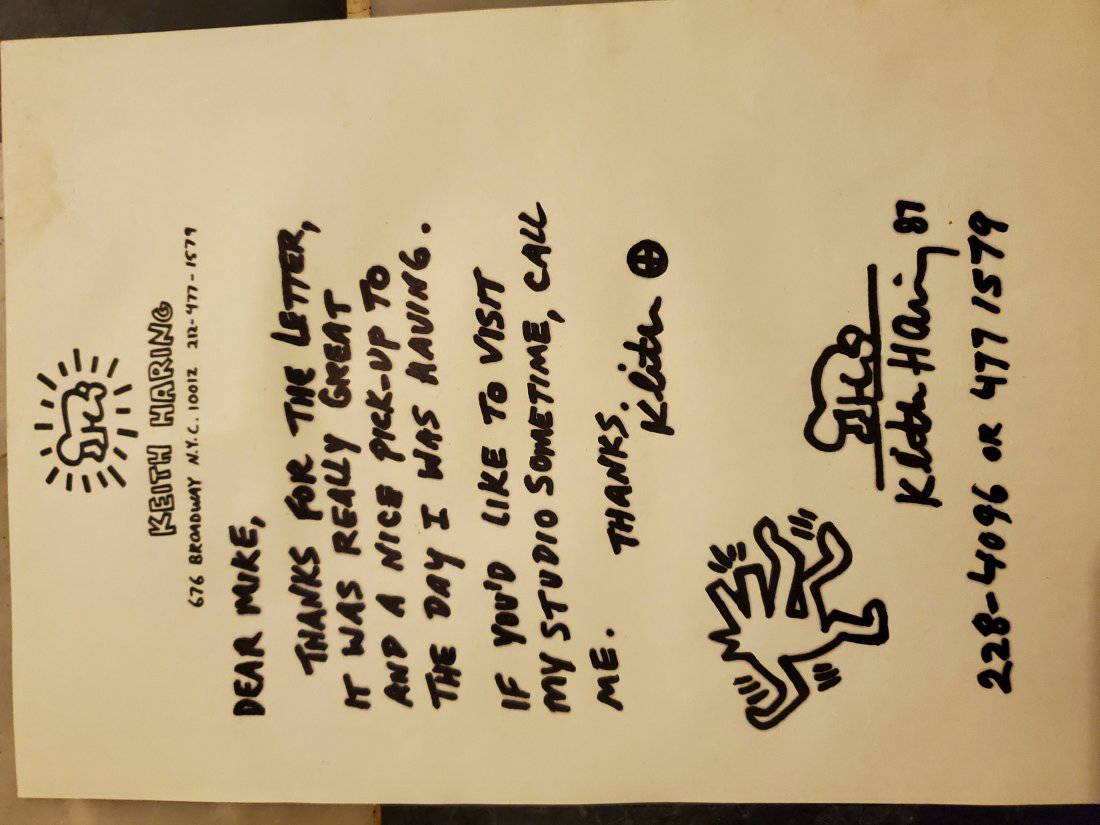 KEITH HARING
676 BROADWAY N.Y.C. 10012 212-477-1579
DEAR MIKE,
THANKS FOR THE LETTER,
IT WAS REALLY GREAT
AND A NICE PICK-UP TO
THE DAY I WAS HAVING.
IF YOU'D LIKE TO VISIT
MY STUDIO SOMETIME, CALL
ME. THANKS.
Keith
Keith Haring 87
228-4096 OR 477 1579